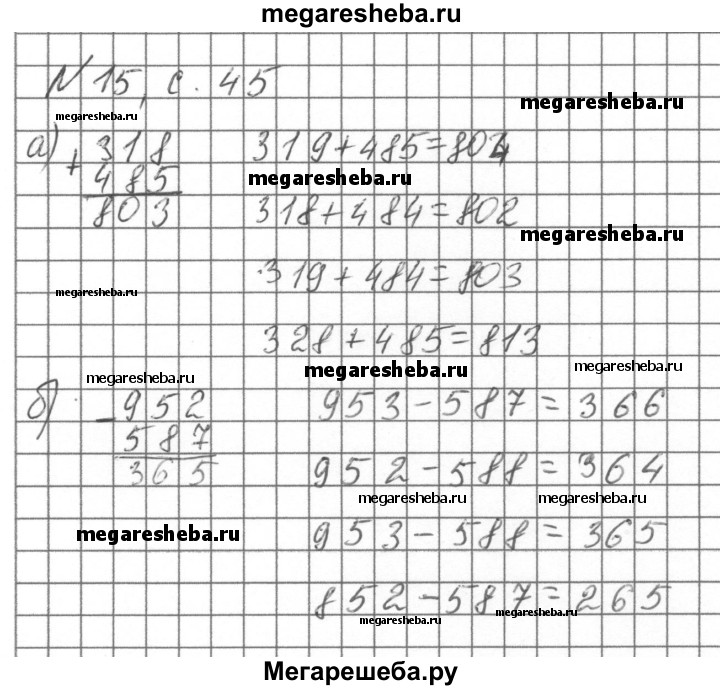 megaresheba.ru
N 15, с. 45
megaresheba.ru
megaresheba.ru
а) + 318 319+485=804
485
megaresheba.ru
803 318+484=802
megaresheba.ru
319+484=803
megaresheba.ru
328+485=813
megaresheba.ru
megaresheba.ru
megaresheba.ru
б) - 952 953-587=366
587
365 952-588=364
megaresheba.ru megaresheba.ru
megaresheba.ru
953-588=365
852-587=265
megaresheba.ru
megaresheba.ru
Мегарешеба.ру